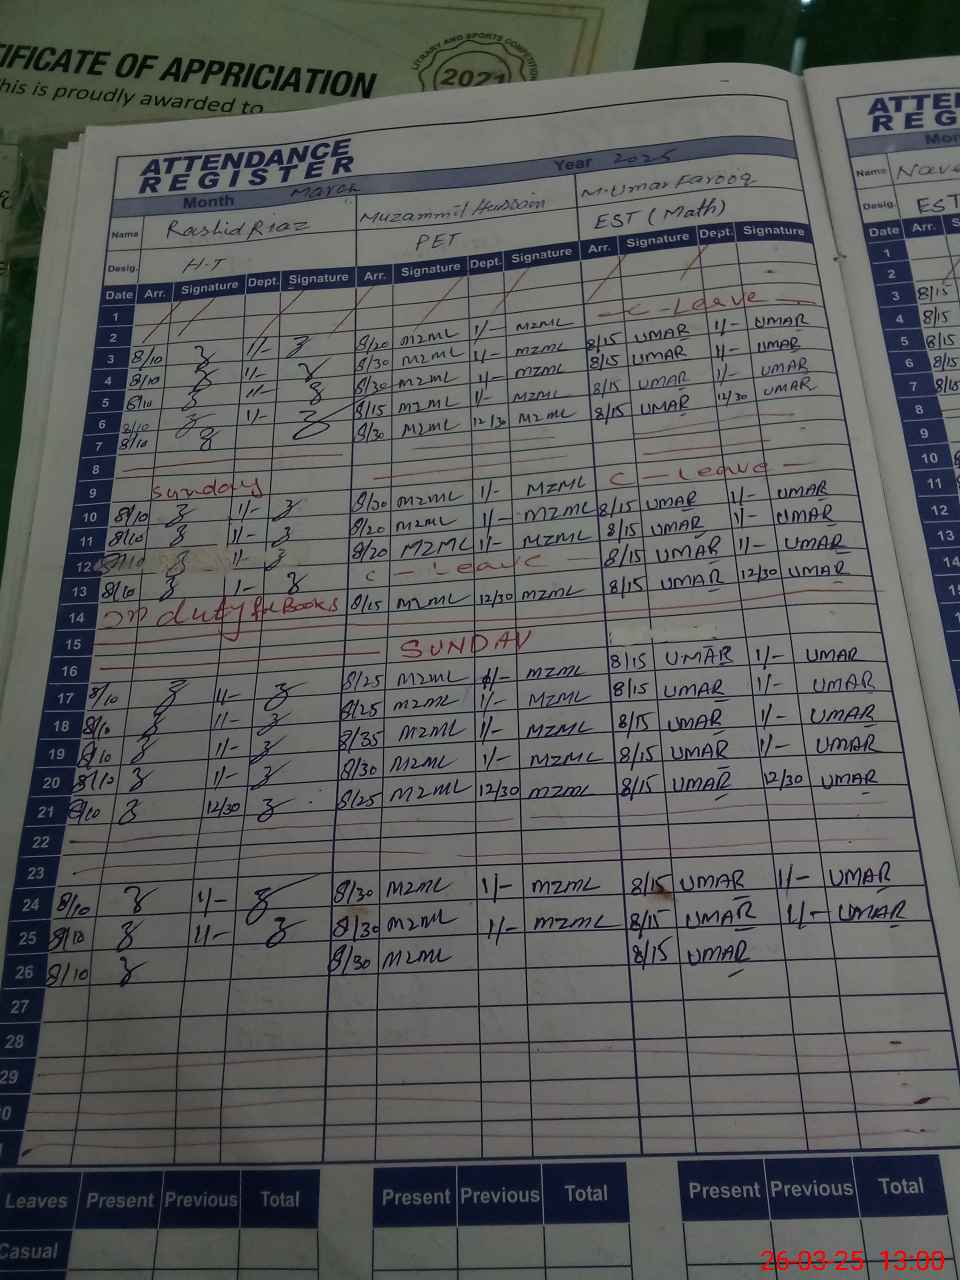 TIFICATE OF APPRICIATION
This is proudly awarded to
LITRARY AND SPORTS COMPETITION
2021
ATTENDANCE
REGISTER
Month March Year 2025
Name Rashid Riaz Muzammil Hussain M. Umar Farooq
Desig. H-T PET EST (Math)
Date Arr. Signature Dept. Signature Arr. Signature Dept. Signature Arr. Signature Dept. Signature
1
2
3 8/10 1/- 8/20 MZML 1/- MZML C - Leave
4 8/10 1/- 8/30 MZML 1/- MZML 8/15 UMAR 1/- UMAR
5 8/10 1/- 8/30 MZML 1/- MZML 8/15 UMAR 1/- UMAR
6 8/10 1/- 8/15 MZML 1/- MZML 8/15 UMAR 1/- UMAR
7 8/10 8/30 MZML 12/30 MZML 8/15 UMAR 12/30 UMAR
8
9 Sunday
10 8/10 1/- 8/30 MZML 1/- MZML C - Leave
11 8/10 1/- 8/20 MZML 1/- MZML 8/15 UMAR 1/- UMAR
12 8/10 1/- 8/20 MZML 1/- MZML 8/15 UMAR 1/- UMAR
13 8/10 1/- C - Leave 8/15 UMAR 1/- UMAR
14 on duty for Books 8/15 MZML 12/30 MZML 8/15 UMAR 12/30 UMAR
15
16 SUNDAY
17 8/10 1/- 8/25 MZML 1/- MZML 8/15 UMAR 1/- UMAR
18 8/10 1/- 8/25 MZML 1/- MZML 8/15 UMAR 1/- UMAR
19 8/10 1/- 8/35 MZML 1/- MZML 8/15 UMAR 1/- UMAR
20 8/10 1/- 8/30 MZML 1/- MZML 8/15 UMAR 1/- UMAR
21 8/10 12/30 8/25 MZML 12/30 MZML 8/15 UMAR 12/30 UMAR
22
23
24 8/10 1/- 8/30 MZML 1/- MZML 8/15 UMAR 1/- UMAR
25 8/10 1/- 8/30 MZML 1/- MZML 8/15 UMAR 1/- UMAR
26 8/10 8/30 MZML 8/15 UMAR
27
28
29
Leaves Present Previous Total Present Previous Total Present Previous Total
Casual
ATTEN
REG
Mon
Name Nave
Desig. EST
Date Arr. S
1
2
3 8/15
4 8/15
5 8/15
6 8/15
7 8/15
8
9
10
11
12
13
14
26-03-25 13:00